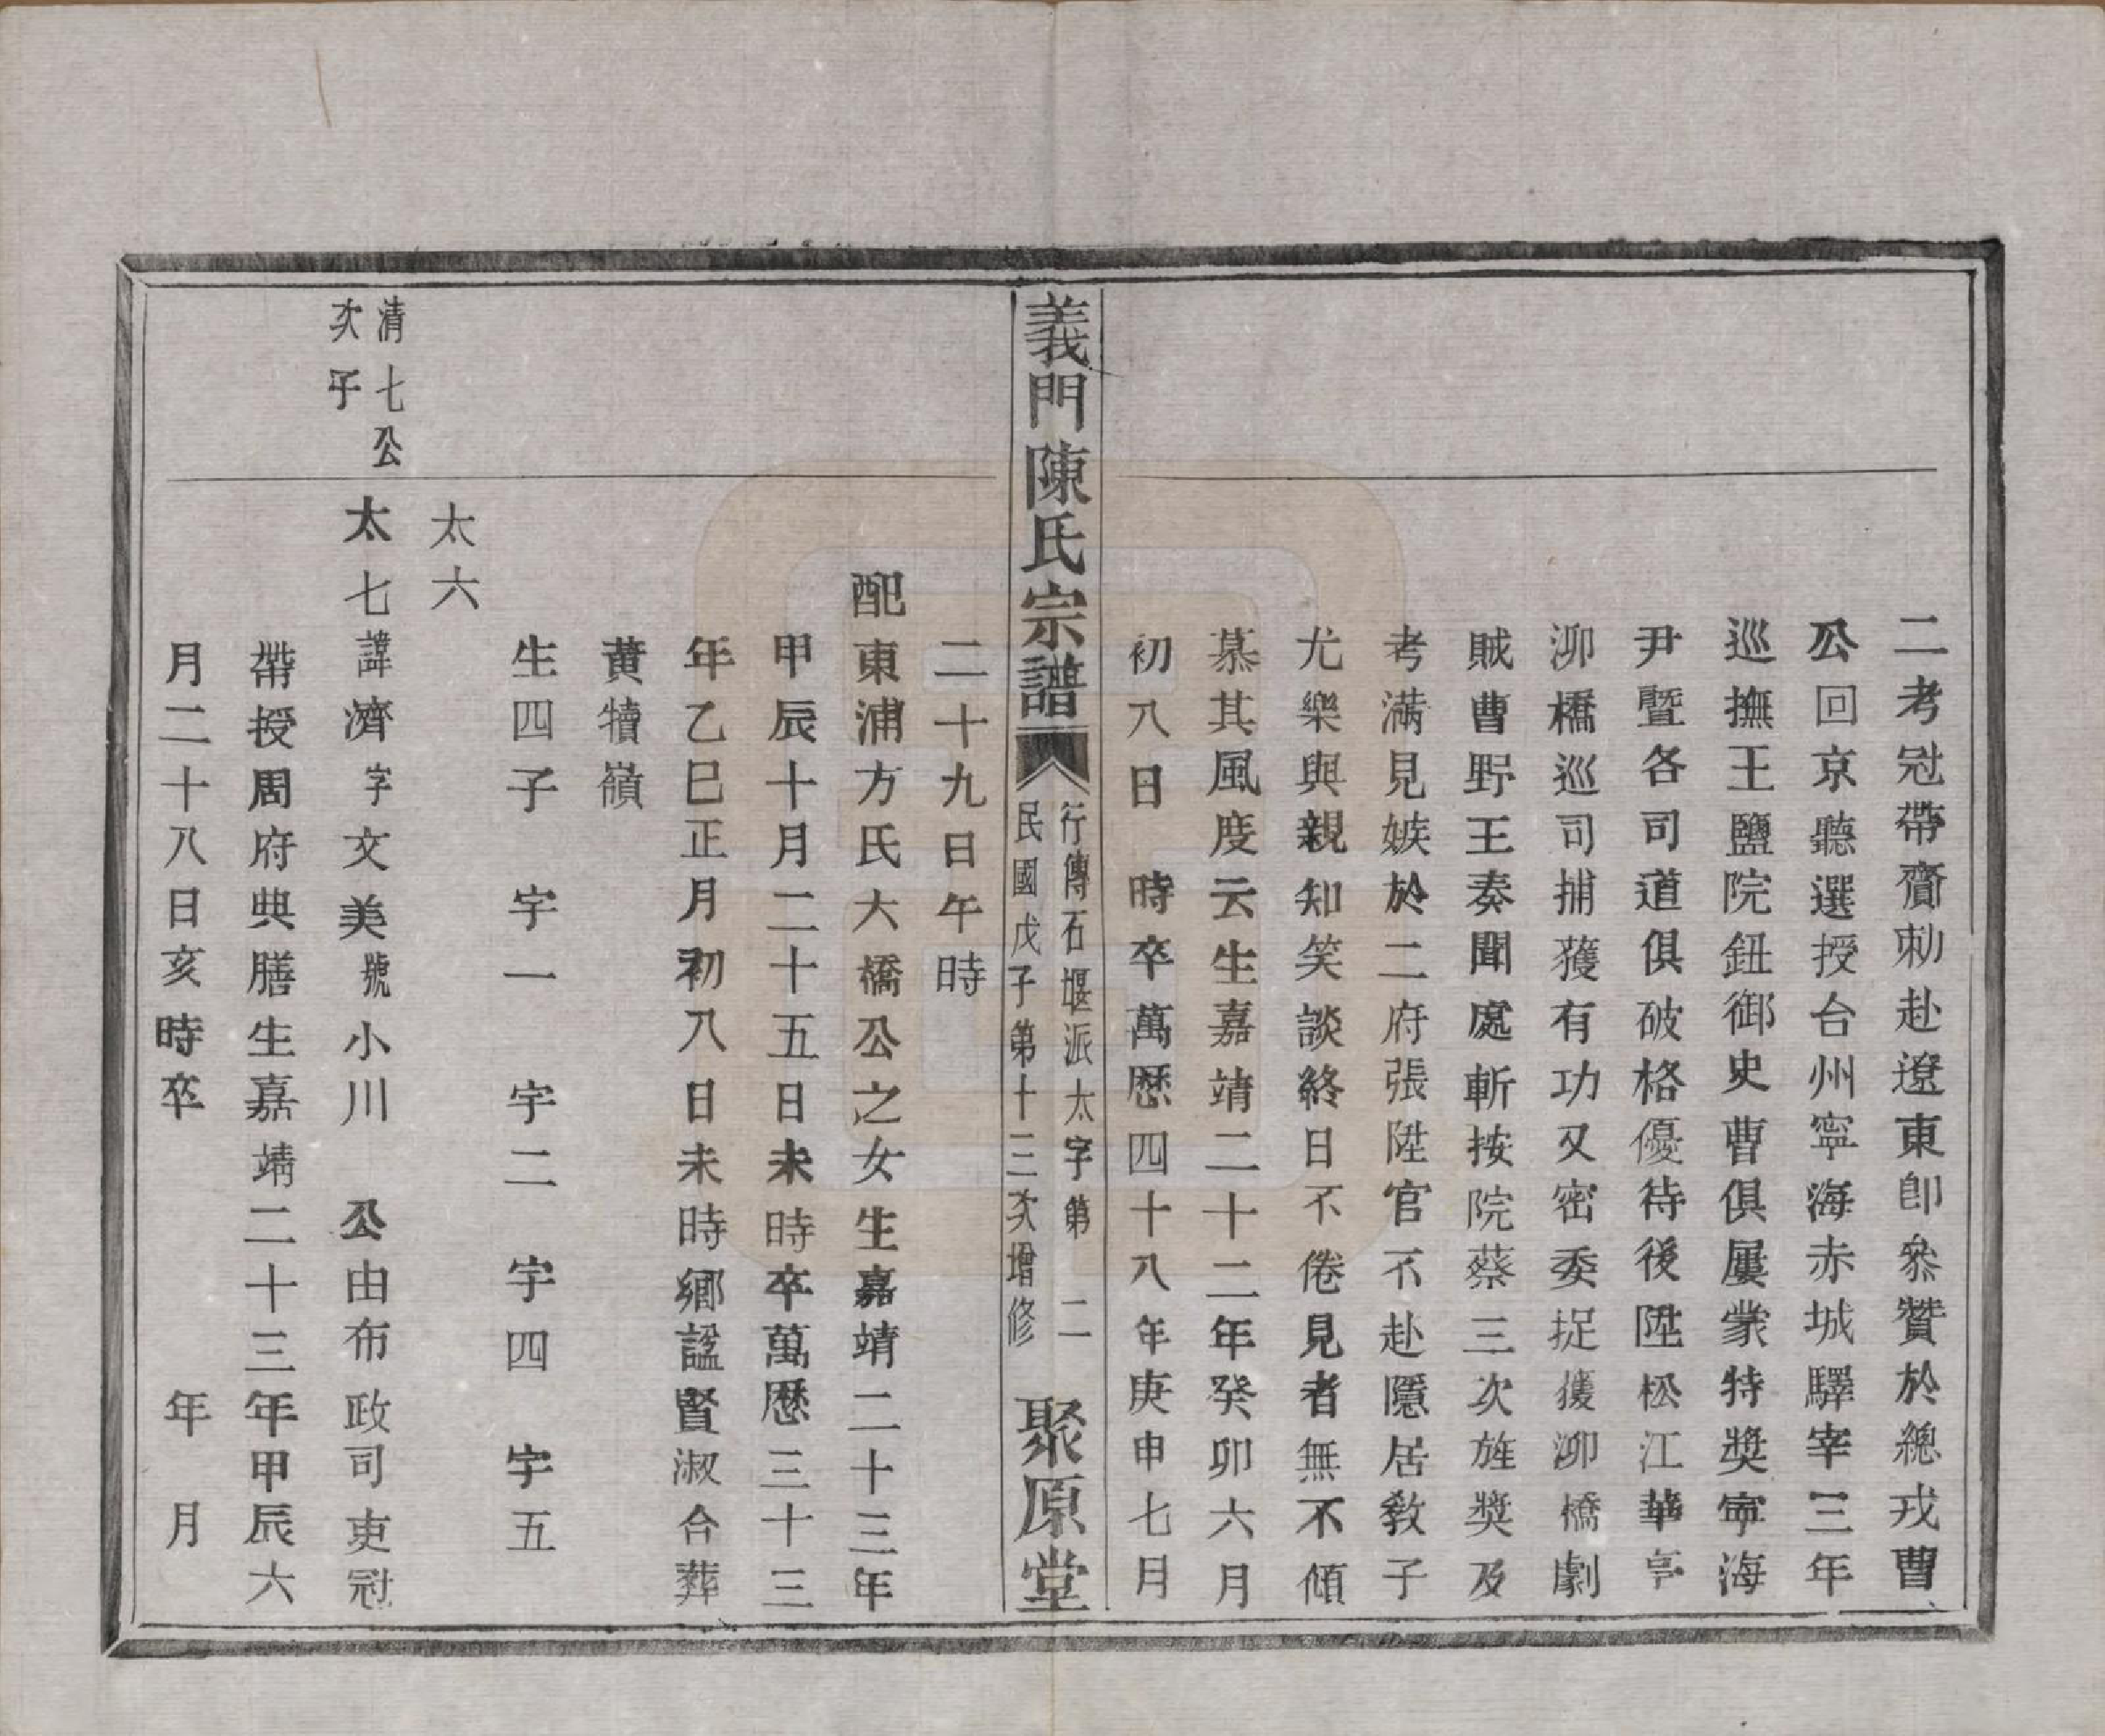 二考冠帶齎勅赴遼東即叅贊於總戎曹
公回京聽選授台州寧海赤城驛宰三年
巡撫王鹽院鈕御史曹俱屢蒙特奬寧海
尹暨各司道俱破格優待後陞松江華亭
泖橋巡司捕獲有功又密委捉獲泖橋劇
賊曹野王奏聞處斬按院蔡三次旌獎及
考滿見嫉於二府張陞官不赴隱居敎子
尤樂與親知笑談終日不倦見者無不傾
慕其風度云生嘉靖二十二年癸卯六月
初八日　時卒萬歴四十八年庚申七月
義門陳氏宗譜
行傳石堰派太字第　二
民國戊子第十三次增修
聚原堂
二十九日午時
配東浦方氏大橋公之女生嘉靖二十三年
甲辰十月二十五日未時卒萬歴三十三
年乙巳正月初八日未時鄉諡賢淑合葬
黃犢嶺
生四子　宇一　宇二　宇四　宇五
太六
清七公
次子
太七諱濟字文美號小川　公由布政司吏冠
帶授周府典膳生嘉靖二十三年甲辰六
月二十八日亥時卒　　　　年　月